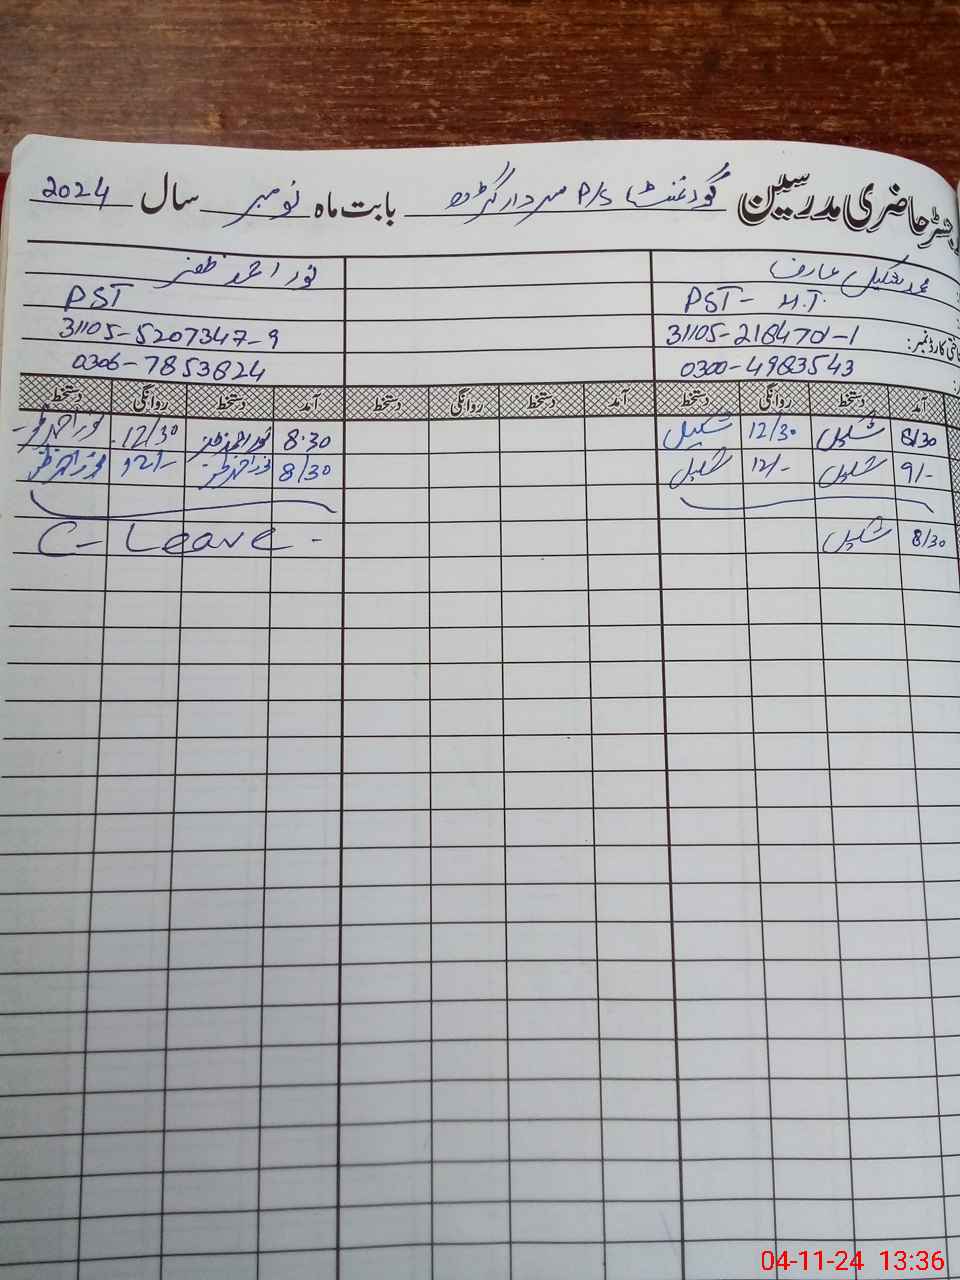 رجسٹر حاضری مدرسین گورنمنٹ P/S سردار گڑھ بابت ماہ نومبر سال 2024
محمد شکیل عارف نور احمد ظفر
PST - H.T. PST
31105-5207347-9
0300-4983543 0306-7853824
آمد دستخط روانگی دستخط آمد دستخط روانگی دستخط آمد دستخط روانگی دستخط
8/30 شکیل 12/30 شکیل 8.30 نور احمد ظفر 12/30 نور احمد ظفر
9/- شکیل 12/- شکیل 8/30 نور احمد ظفر 12/- نور احمد ظفر
8/30 شکیل C- Leave -
04-11-24 13:36